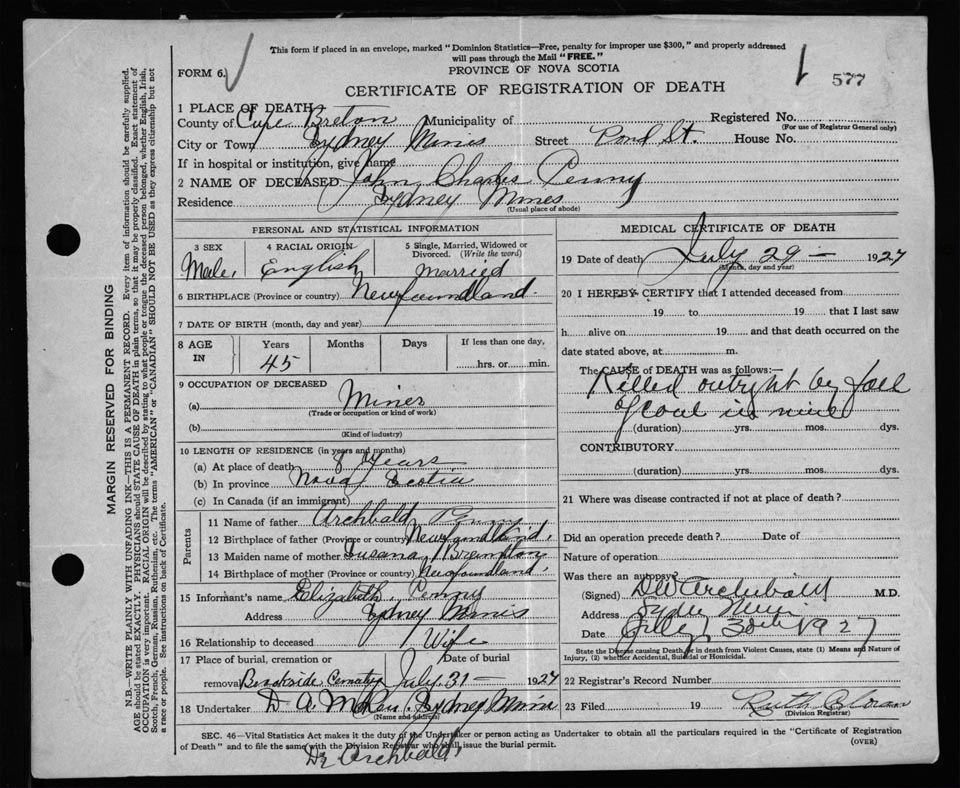 This form if placed in an envelope, marked "Dominion Statistics—Free, penalty for improper use $300," and properly addressed
will pass through the Mail "FREE."
FORM 6.
PROVINCE OF NOVA SCOTIA
1 577
CERTIFICATE OF REGISTRATION OF DEATH
1 PLACE OF DEATH
County of Cape Breton Municipality of Registered No.
(For use of Registrar General only)
City or Town Sydney Mines Street Pond St. House No.
If in hospital or institution, give name
2 NAME OF DECEASED John Charles Penny
Residence Sydney Mines
(Usual place of abode)
PERSONAL AND STATISTICAL INFORMATION
3 SEX 4 RACIAL ORIGIN 5 Single, Married, Widowed or Divorced. (Write the word)
Male, English married
6 BIRTHPLACE (Province or country) Newfoundland.
7 DATE OF BIRTH (month, day and year)
8 AGE IN Years Months Days If less than one day,
45 hrs. or min.
9 OCCUPATION OF DECEASED
(a) Miner
(Trade or occupation or kind of work)
(b)
(Kind of industry)
10 LENGTH OF RESIDENCE (in years and months)
(a) At place of death 8 years
(b) In province Nova Scotia
(c) In Canada (if an immigrant)
Parents
11 Name of father Archbald Penny
12 Birthplace of father (Province or country) Newfoundland,
13 Maiden name of mother Susana
14 Birthplace of mother (Province or country) Newfoundland,
15 Informant's name Elizabeth Penny
Address Sydney Mines
16 Relationship to deceased Wife
17 Place of burial, cremation or removal Date of burial
Brookside Cemetery July 31— 1927
18 Undertaker D A Sydney Mines
(Name and address)
MEDICAL CERTIFICATE OF DEATH
19 Date of death July 29— 1927
(Month, day and year)
20 I HEREBY CERTIFY that I attended deceased from
19 to 19 that I last saw
h alive on 19 and that death occurred on
date stated above, at m.
The CAUSE of DEATH was as follows:—
Killed outright by fall
of coal in mine
(duration) yrs. mos. dys.
CONTRIBUTORY
(duration) yrs. mos. dys.
21 Where was disease contracted if not at place of death?
Did an operation precede death? Date of
Nature of operation
Was there an autopsy?
(Signed) Archibald M.D.
Address Mines
Date July 30th 1927
State the Disease causing Death, or in death from Violent Causes, state (1) Means and Nature of
Injury, (2) whether Accidental, Suicidal or Homicidal.
22 Registrar's Record Number
23 Filed 19 Ruth
(Division Registrar)
SEC. 46—Vital Statistics Act makes it the duty of the Undertaker or person acting as Undertaker to obtain all the particulars required in the "Certificate of Registration
of Death" and to file the same with the Division Registrar who shall issue the burial permit. (OVER)
Dr Archbald,
MARGIN RESERVED FOR BINDING
N.B.—WRITE PLAINLY WITH UNFADING INK—THIS IS A PERMANENT RECORD. Every item of information should be carefully supplied.
AGE should be stated EXACTLY. PHYSICIANS should STATE CAUSE OF DEATH in plain terms, so that it may be properly classified. Exact statement of
OCCUPATION is very important. RACIAL ORIGIN will be described by stating to what people or tongue the deceased person belonged, whether English, Irish,
Scotch, French, German, Russian, Ruthenian, etc. The terms "AMERICAN" or "CANADIAN" SHOULD NOT BE USED as they express citizenship but not
a race or people. See instructions on back of Certificate.